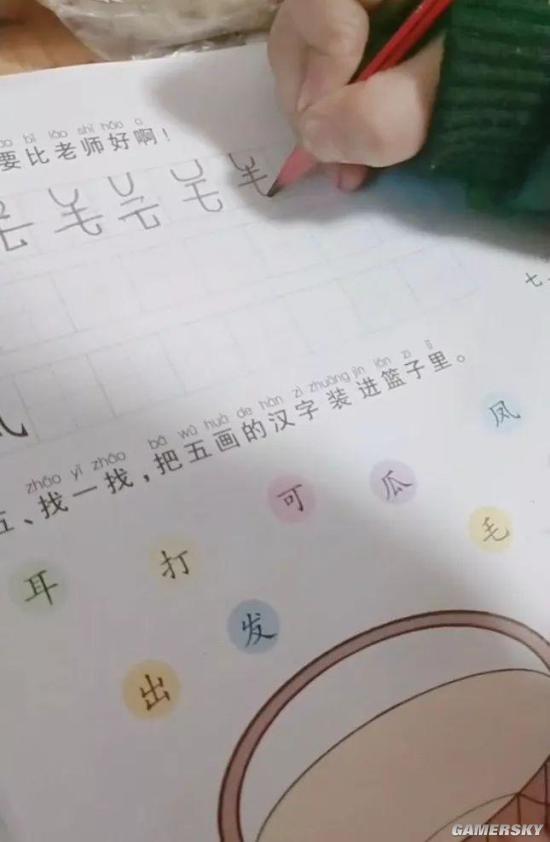 bǐ lǎo shī hǎo a
要比老师好啊！
七
zhǎo yī zhǎo bǎ wǔ huà de hàn zì zhuāng jìn lán zi lǐ
五、找一找，把五画的汉字装进篮子里。
凤
瓜
可
毛
打
耳
发
出
GAMERSKY